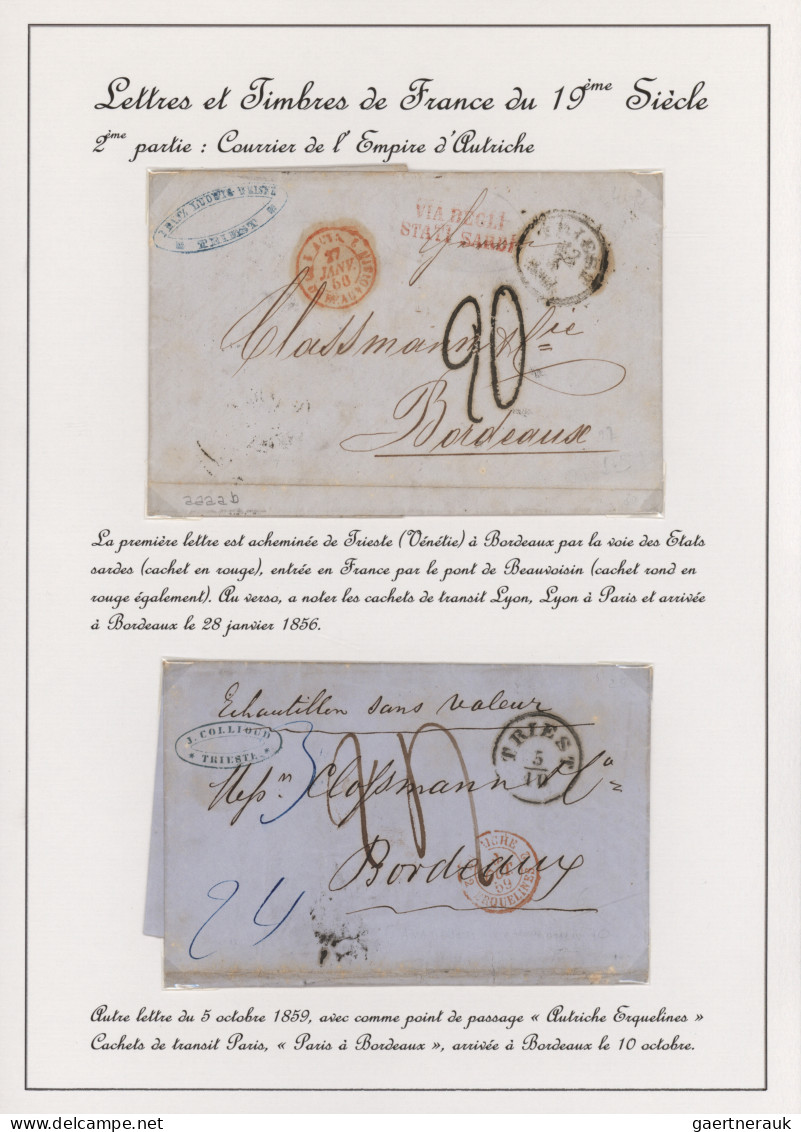 Lettres et Timbres de France du 19ème Siècle
2ème partie : Courrier de l' Empire d'Autriche
VIA DEGLI
STATI SARDI
27
JANV
Classmann & Cie
20
Bordeaux
aaaab
La première lettre est acheminée de Trieste (Vénétie) à Bordeaux par la voie des Etats
sardes (cachet en rouge), entrée en France par le pont de Beauvoisin (cachet rond en
rouge également). Au verso, a noter les cachets de transit Lyon, Lyon à Paris et arrivée
à Bordeaux le 28 janvier 1856.
Echantillon sans valeur
J. COLLIOUD
TRIESTE
TRIEST
5
10
3
Messrs Clossmann & Co
Bordeaux
59
ERQUELINES
24
Autre lettre du 5 octobre 1859, avec comme point de passage « Autriche Erquelines »
Cachets de transit Paris, « Paris à Bordeaux », arrivée à Bordeaux le 10 octobre.
delcampe.net
gaertnerauk